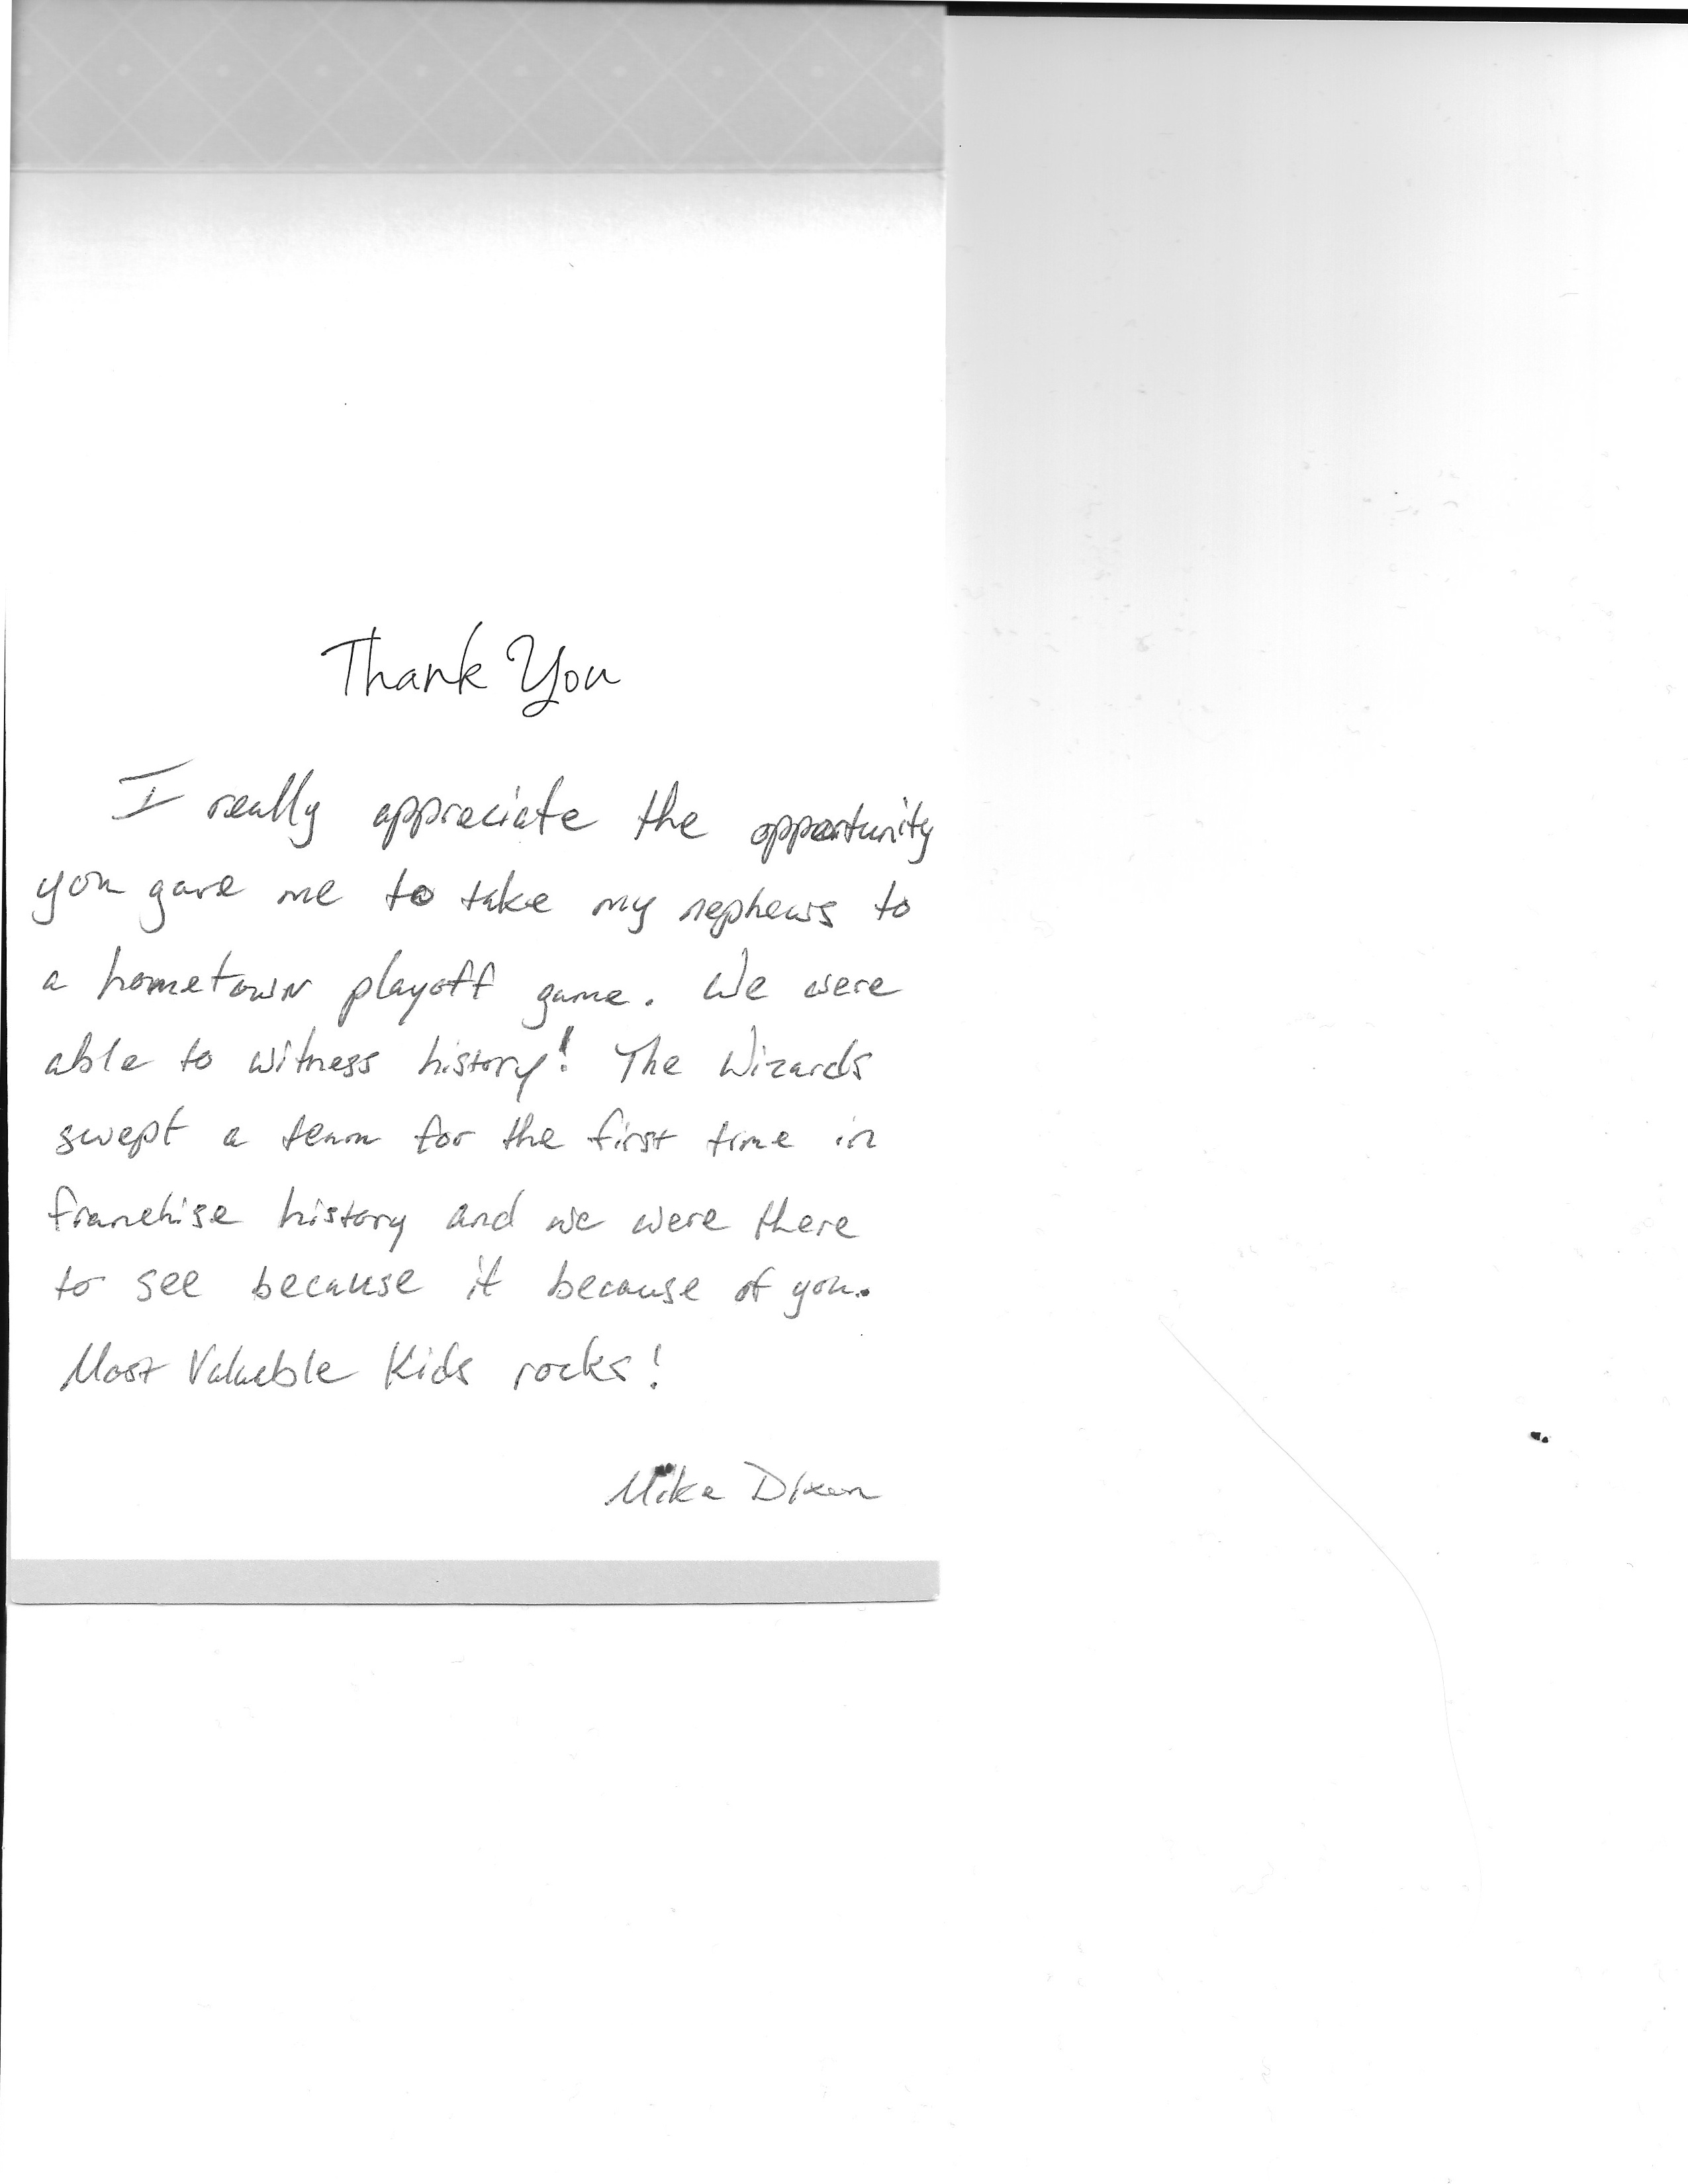 Thank You
I really appreciate the opportunity
you gave me to take my nephews to
a hometown playoff game. We were
able to witness history! The Wizards
swept a team for the first time in
franchise history and we were there
to see because it because of you.
Most Valuable Kids rocks!
Mike Dixon